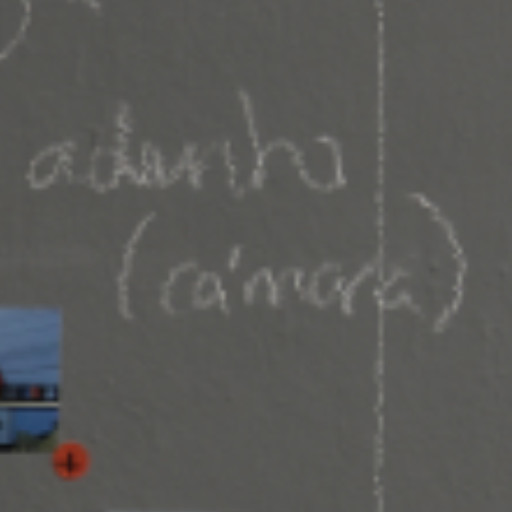 adinha
(cámara)